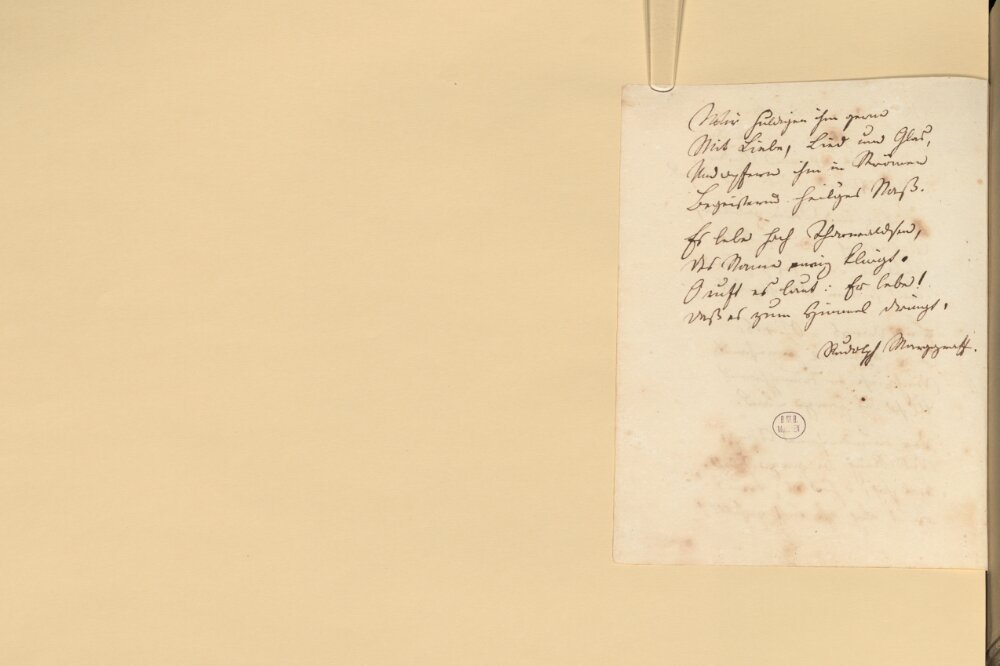 Wir huldigen ihm gerne
Mit Liebe, Lied und Glas,
Und opfern ihm in Strömen
Begeisternd heil'ges Naß.
Es lebe hoch Thorwaldsen,
Des Name ewig klingt.
O ruft es laut: Er lebe!
Daß es zum Himmel dringt.
Rudolph Marggraff.